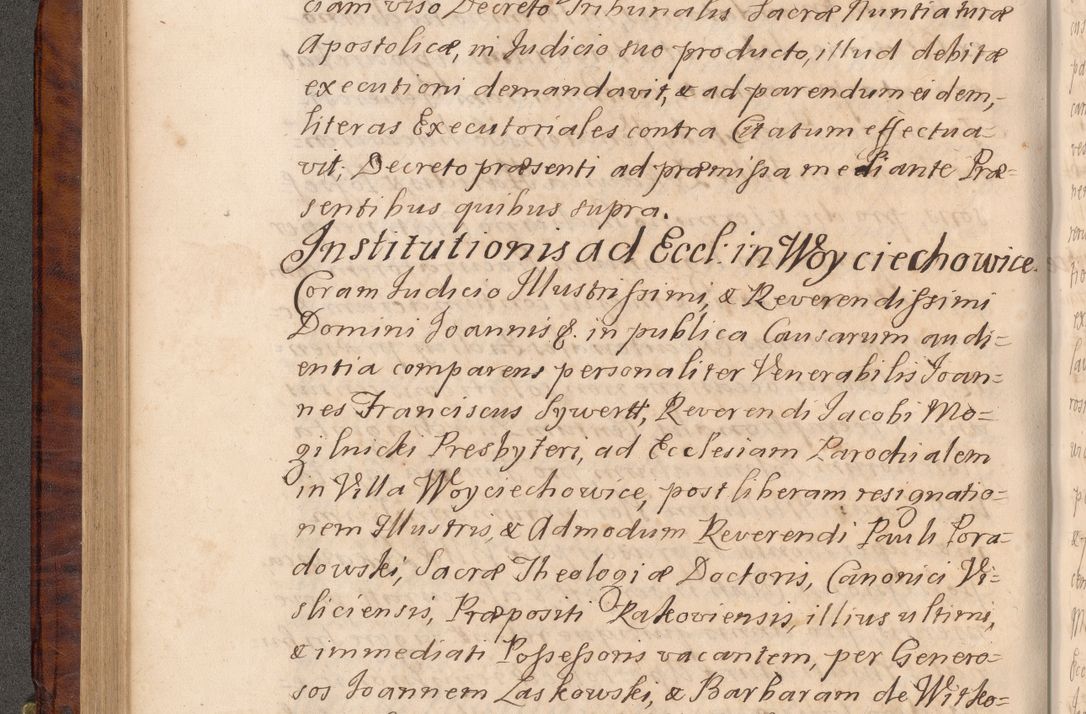 ciam viso Decreto Tribunalis Sacræ Nuntiaturæ
Apostolicæ, in Judicio suo producto, illud debitæ
executioni demandavit, & ad parendum eidem,
literas Executoriales contra Citatum effectua-
vit; Decreto præsenti ad præmissa mediante Præ-
sentibus quibus supra.
Institutionis ad Eccl: in Woyciechowice.
Coram Judicio Illustrissimi, & Reverendissimi
Domini Joannis &. in publica Causarum audi-
entia comparens personaliter Venerabilis Joan-
nes Franciscus Sywertt, Reverendi Jacobi Mo-
gilnicki Presbyteri, ad Ecclesiam Parochialem
in Villa Woyciechowice, post liberam resignatio-
nem Illustris, & Admodum Reverendi Pauli Pora-
dowski, Sacræ Theologiæ Doctoris, Canonici Vi-
sliciensis, Præpositi Rakoviensis, illius ultimi,
& immediati Possessoris vacantem, per Genero-
sos Joannem Laskowski, & Barbaram de Witko-